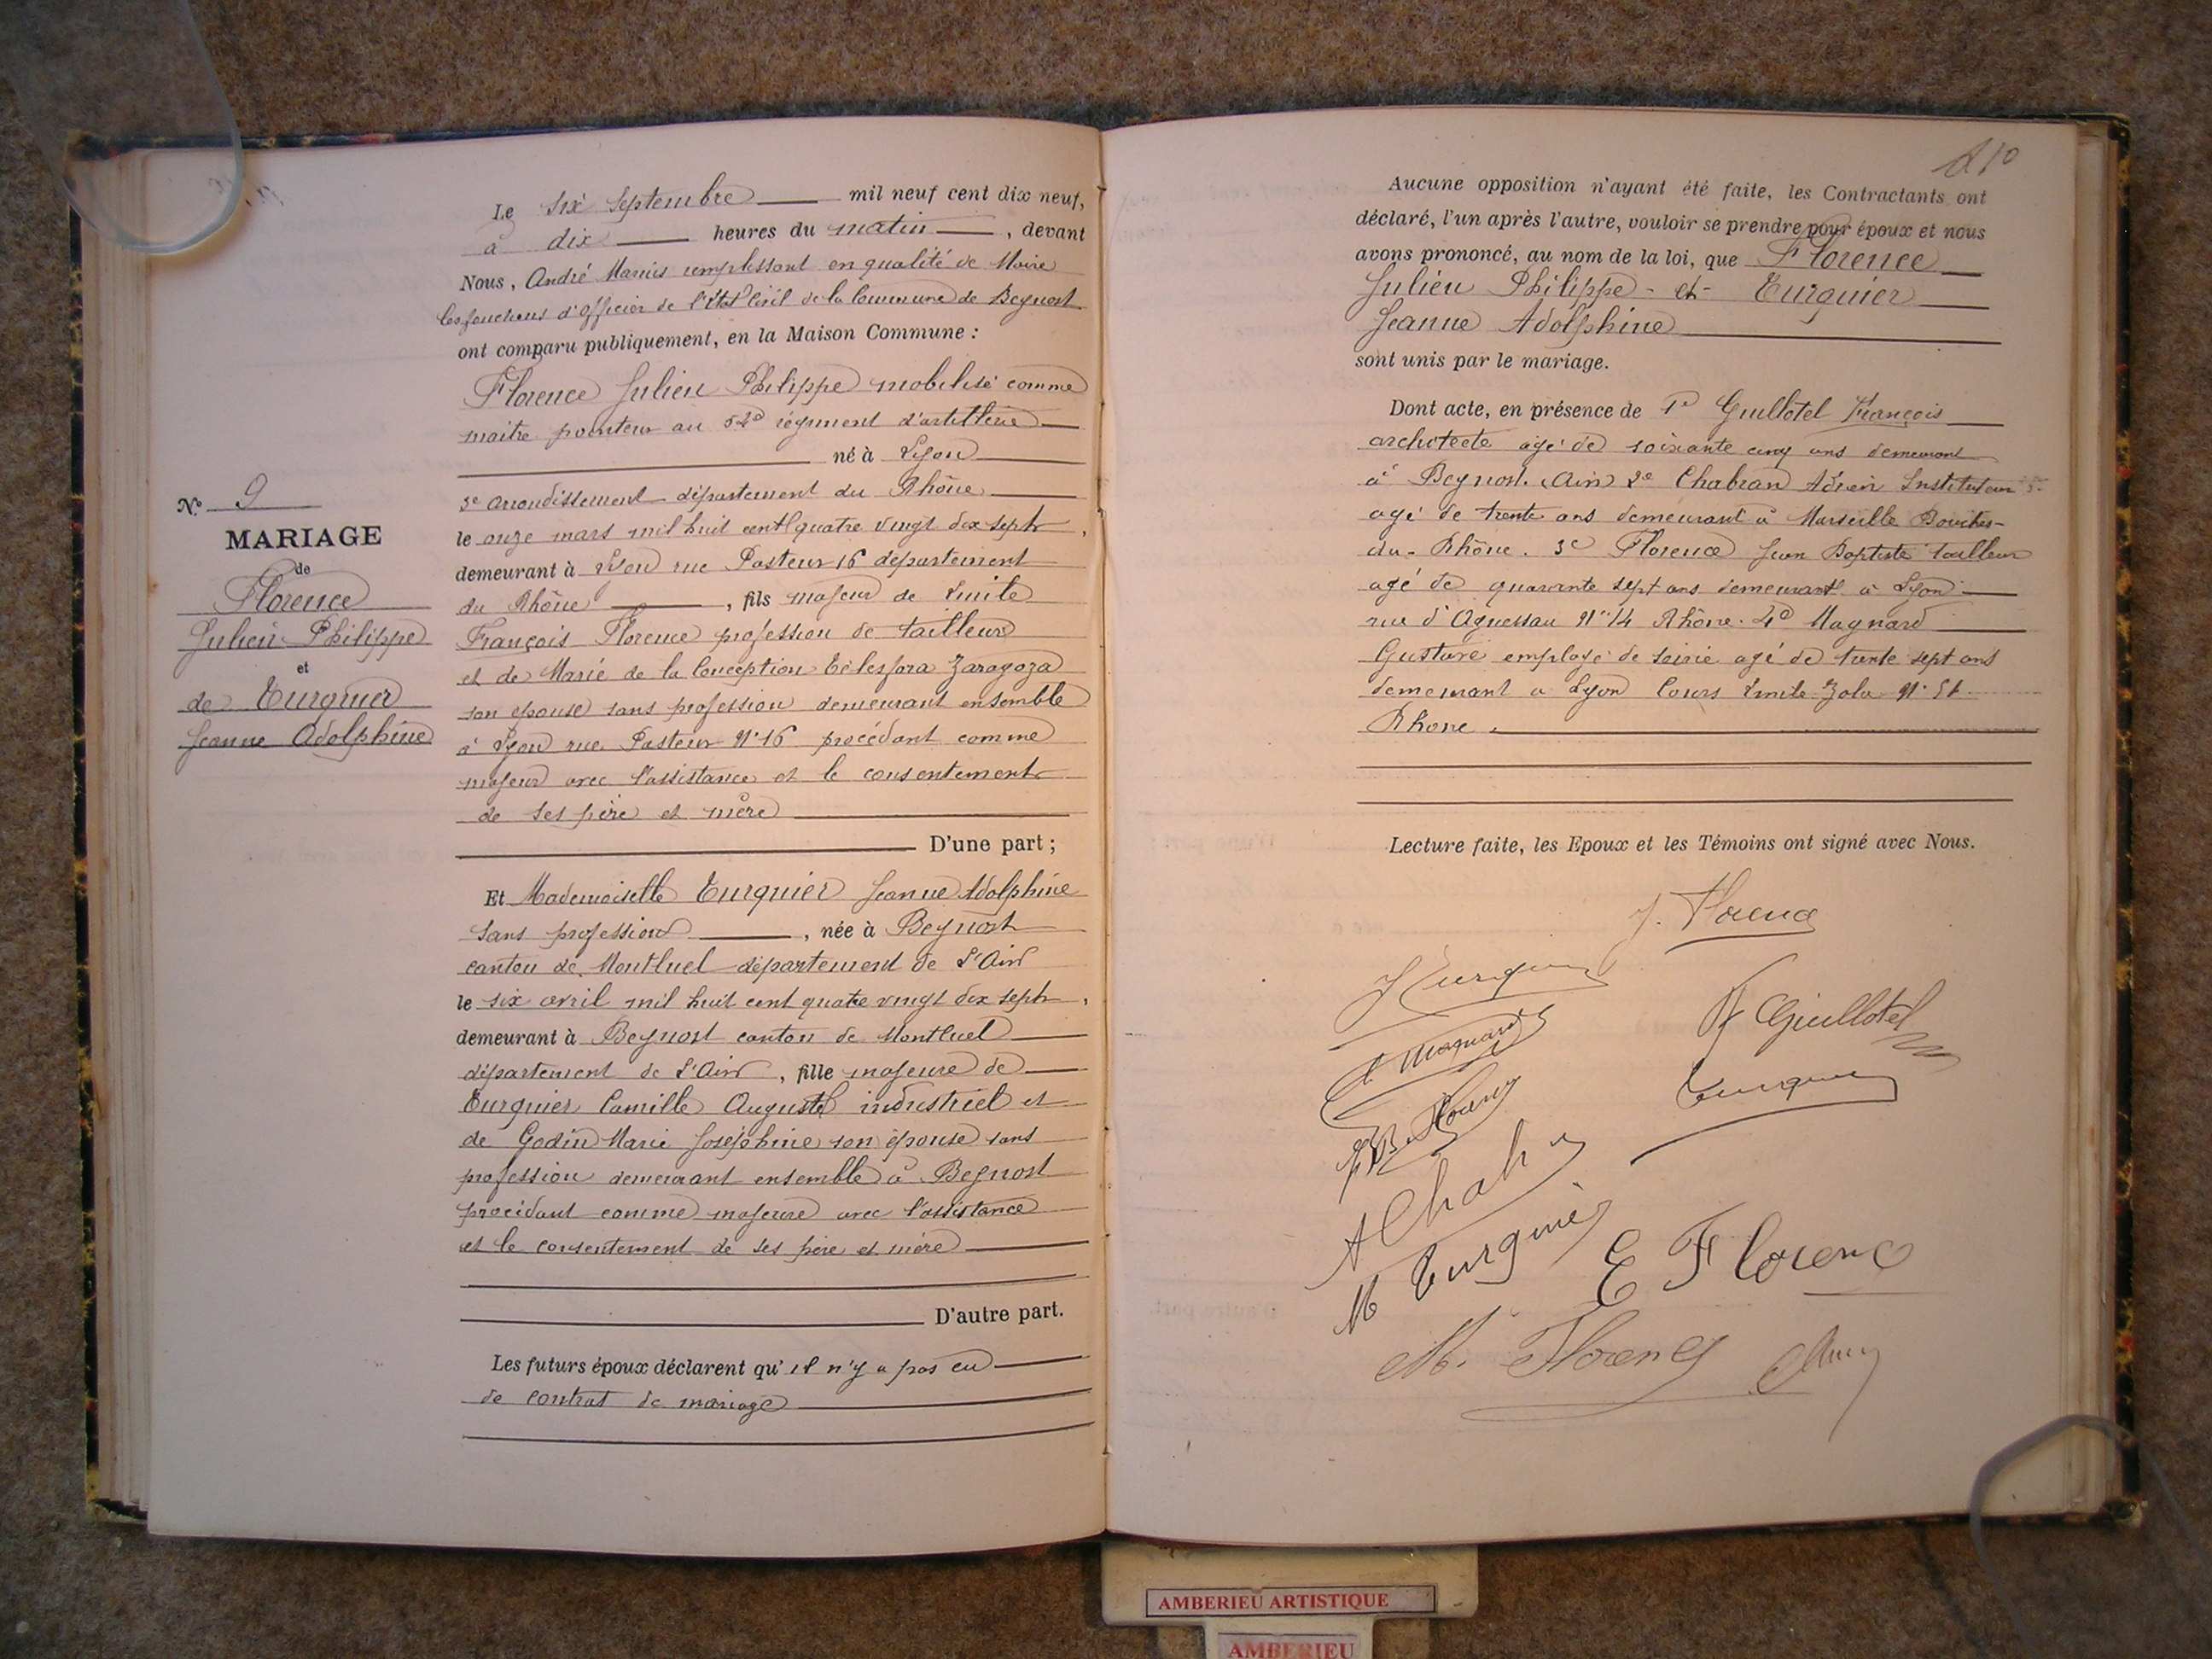 Le six Septembre mil neuf cent dix neuf,
à dix heures du matin, devant
Nous, André Marius remplissant en qualité de Maire
les fonctions d'officier de l'État Civil de la Commune de Beynost
ont comparu publiquement, en la Maison Commune :
Florence Julien Philippe mobilisé comme
maitre pointeur au 54e régiment d'artillerie
né à Lyon
3e arrondissement département du Rhône
le onze mars mil huit cent quatre vingt dix sept,
demeurant à Lyon rue Pasteur 16 département
du Rhône, fils majeur de Emile
François Florence profession de tailleur
et de Marie de la Conception Zaragoza
son épouse sans profession demeurant ensemble
à Lyon rue Pasteur N° 16 procédant comme
majeur avec l'assistance et le consentement
de ses père et mère
D'une part ;
Et Mademoiselle Eurguier Jeanne Adolphine
sans profession, née à Beynost
canton de Montluel département de l'Ain
le six avril mil huit cent quatre vingt dix sept,
demeurant à Beynost canton de Montluel
département de l'Ain, fille majeure de
Eurguier Camille Auguste industriel et
de Godin Marie Joséphine son épouse sans
profession demeurant ensemble à Beynost
procédant comme majeure avec l'assistance
et le consentement de ses père et mère
D'autre part.
Les futurs époux déclarent qu'il n'y a pas eu
de contrat de mariage
N° 9
MARIAGE
de
Florence
Julien Philippe
et
de Eurguier
Jeanne Adolphine
Aucune opposition n'ayant été faite, les Contractants ont
déclaré, l'un après l'autre, vouloir se prendre pour époux et nous
avons prononcé, au nom de la loi, que Florence
Julien Philippe - et - Eurguier
Jeanne Adolphine
sont unis par le mariage.
Dont acte, en présence de 1° Guillotel François
architecte agé de soixante cinq ans demeurant
à Beynost. Ain 2e Chabran Adrien Instituteur
agé de trente ans demeurant à Marseille Bouches-
du-Rhône. 3e Florence Jean Baptiste tailleur
agé de quarante sept ans demeurant à Lyon
rue d'Aguesseau N° 14 Rhône. 4° Magnard
Gustave employé de soierie agé de trente sept ans
demeurant à Lyon Cours Emile Zola N°
Rhone.
Lecture faite, les Epoux et les Témoins ont signé avec Nous.
J. Florence
J Eurguier
F Guillotel
G Magnard
Eurguier
J B Florence
A Chab
M Eurguier
E Florence
M. Florence
AMBERIEU ARTISTIQUE
AMBERIEU